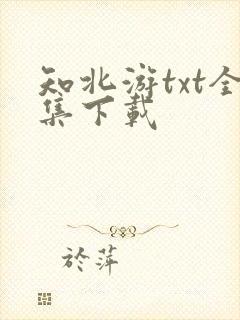 知北游txt全
集下载
於萍